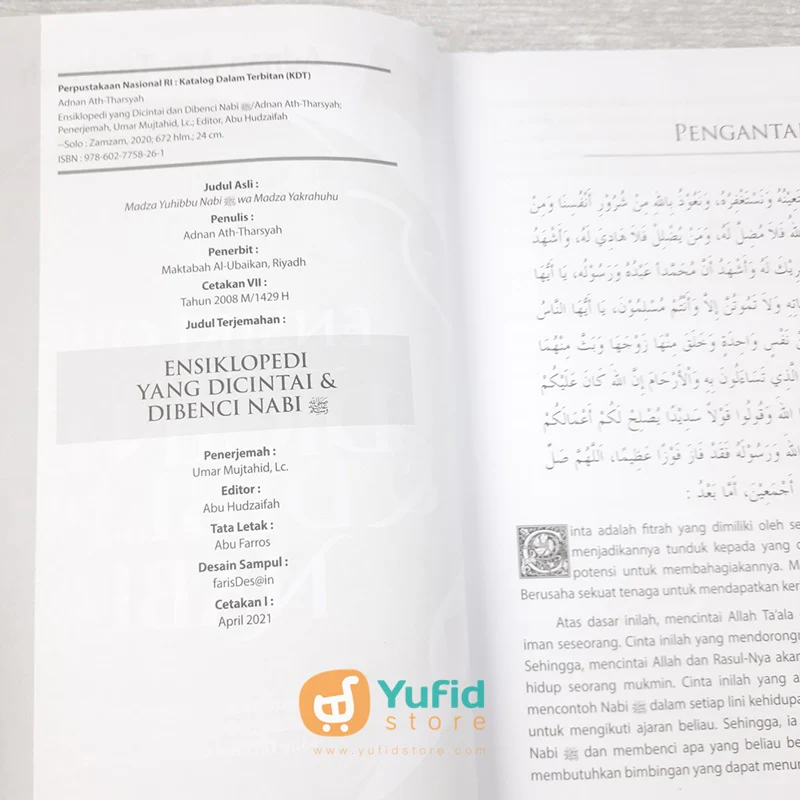 Perpustakaan Nasional RI : Katalog Dalam Terbitan (KDT)
Adnan Ath-Tharsyah
Ensiklopedi yang Dicintai dan Dibenci Nabi ﷺ/Adnan Ath-Tharsyah;
Penerjemah, Umar Mujtahid, Lc.; Editor, Abu Hudzaifah
--Solo : Zamzam, 2020; 672 hlm.; 24 cm.
ISBN : 978-602-7758-26-1
Judul Asli :
Madza Yuhibbu Nabi ﷺ wa Madza Yakrahuhu
Penulis :
Adnan Ath-Tharsyah
Penerbit :
Maktabah Al-Ubaikan, Riyadh
Cetakan VII :
Tahun 2008 M/1429 H
Judul Terjemahan :
ENSIKLOPEDI
YANG DICINTAI &
DIBENCI NABI ﷺ
Penerjemah :
Umar Mujtahid, Lc.
Editor :
Abu Hudzaifah
Tata Letak :
Abu Farros
Desain Sampul :
farisDes@in
Cetakan I :
April 2021
PENGANTA
وَنَسْتَغْفِرُهُ، وَنَعُوْذُ بِاللهِ مِنْ شُرُوْرِ أَنْفُسِنَا وَمِنْ
فَلَا مُضِلَّ لَهُ، وَمَنْ يُضْلِلْ فَلَا هَادِيَ لَهُ، وَأَشْهَدُ
لَهُ وَأَشْهَدُ أَنَّ مُحَمَّداً عَبْدُهُ وَرَسُوْلُهُ، يَا أَيُّهَا
وَلَا تَمُوْتُنَّ إِلَّا وَأَنْتُمْ مُسْلِمُوْنَ، يَا أَيُّهَا النَّاسُ
نَفْسٍ وَاحِدَةٍ وَخَلَقَ مِنْهَا زَوْجَهَا وَبَثَّ مِنْهُمَا
الَّذِي تَسَاءَلُوْنَ بِهِ وَالْأَرْحَامَ إِنَّ اللهَ كَانَ عَلَيْكُمْ
اللهَ وَقُولُوا قَوْلًا سَدِيْدًا يُصْلِحْ لَكُمْ أَعْمَالَكُمْ
اللهَ وَرَسُوْلَهُ فَقَدْ فَازَ فَوْزًا عَظِيْمًا، اَللَّهُمَّ صَلِّ
أَجْمَعِيْنَ، أَمَّا بَعْدُ :
Cinta adalah fitrah yang dimiliki oleh se
menjadikannya tunduk kepada yang
potensi untuk membahagiakannya. M
Berusaha sekuat tenaga untuk mendapatkan
Atas dasar inilah, mencintai Allah Ta'ala
iman seseorang. Cinta inilah yang mendorong
Sehingga, mencintai Allah dan Rasul-Nya akan
hidup seorang mukmin. Cinta inilah yang
mencontoh Nabi ﷺ dalam setiap lini
untuk mengikuti ajaran beliau. Sehingga, ia
Nabi ﷺ dan membenci apa yang beliau
membutuhkan bimbingan yang dapat
Yufid
store
www.yufidstore.com